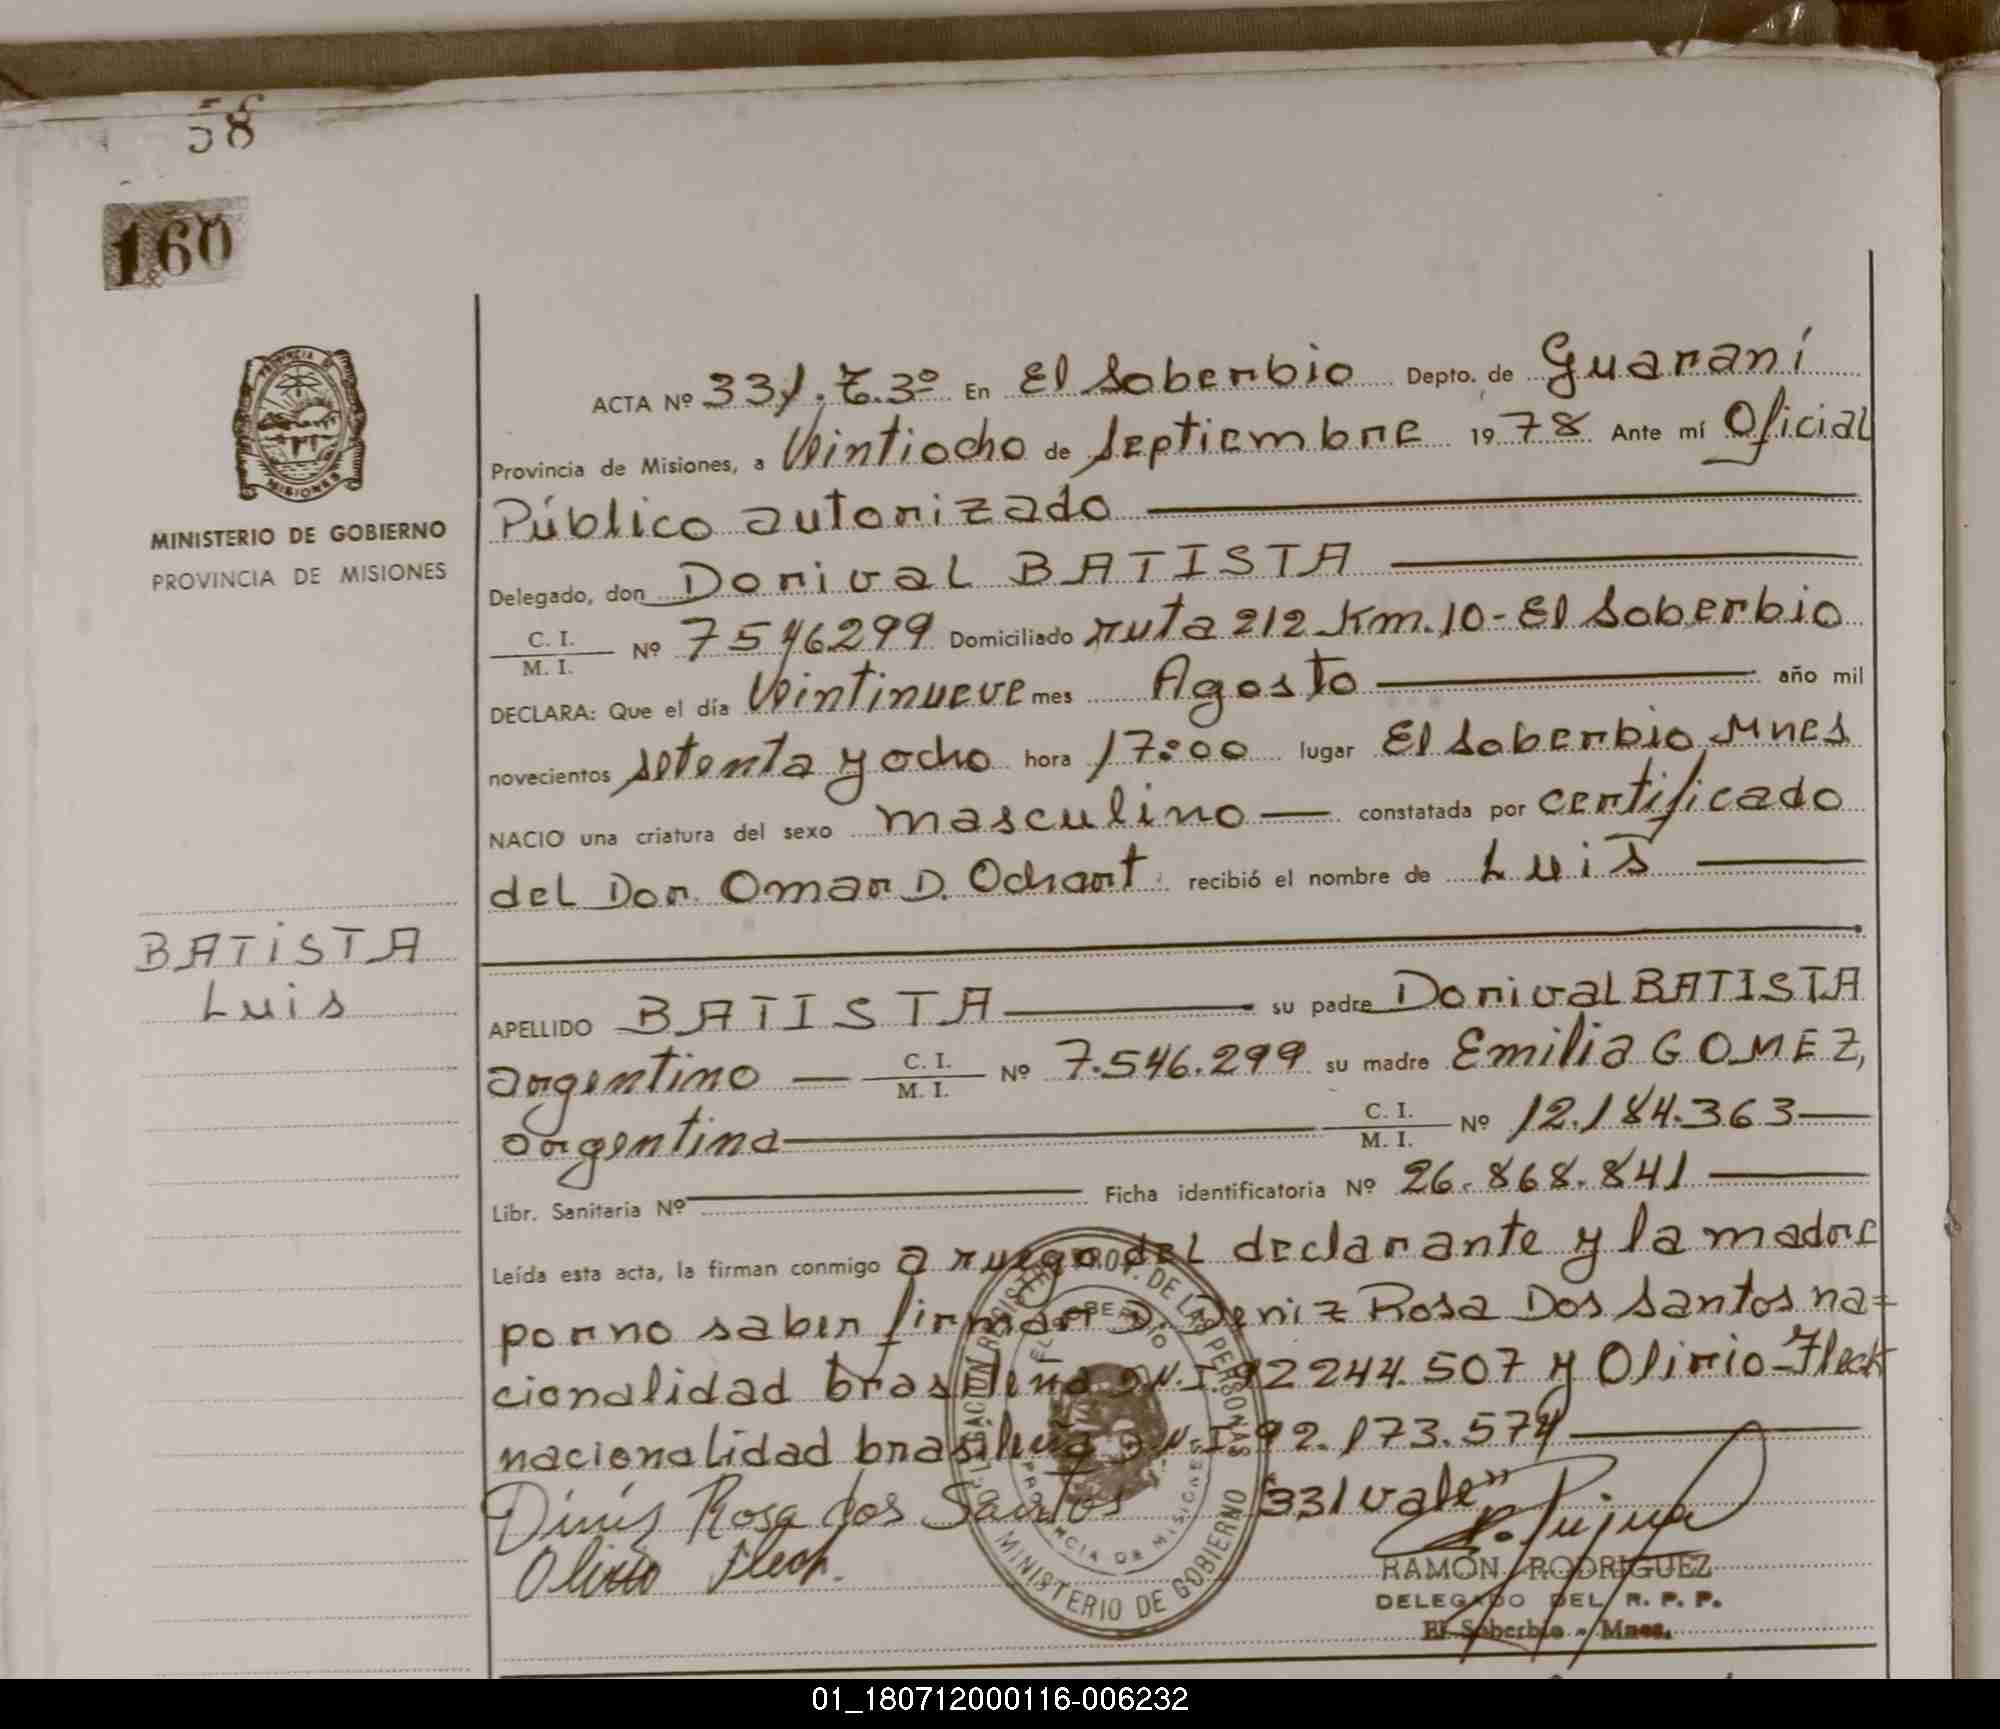 58
160
PROVINCIA DE
MISIONES
MINISTERIO DE GOBIERNO
PROVINCIA DE MISIONES
BATISTA
Luis
ACTA Nº 331.T.3º En El Soberbio Depto. de Guaraní
Provincia de Misiones, a Veintiocho de Septiembre 1978 Ante mí Oficial
Público autorizado
Delegado, don Dorival BATISTA
C. I. / M. I. Nº 7546299 Domiciliado ruta 212 Km.10-El Soberbio
DECLARA: Que el día Veintinueve mes Agosto año mil
novecientos setenta y ocho hora 17:00 lugar El Soberbio, Mnes
NACIO una criatura del sexo masculino constatada por certificado
del Dor. Omar D. Ochart recibió el nombre de Luis
APELLIDO BATISTA su padre Dorival BATISTA
argentino C. I. / M. I. Nº 7.546.299 su madre Emilia GOMEZ,
argentina C. I. / M. I. Nº 12.184.363
Libr. Sanitaria Nº Ficha identificatoria Nº 26.868.841
Leída esta acta, la firman conmigo a ruego del declarante y la madre
por no saber firmar D. Deniz Rosa Dos Santos na=
cionalidad brasileña D.N.I. 92244.507 y Olirio Fleck
nacionalidad brasileña D.N.I. 92.173.574
Diniz Rosa dos Santos "331 vale"
Olirio Fleck.
RAMON RODRIGUEZ
DELEGADO DEL R. P. P.
El Soberbio - Mnes.
PROV. DE LAS PERSONAS
MINISTERIO DE GOBIERNO
EL SOBERBIO
PROVINCIA DE MISIONES
01_180712000116-006232